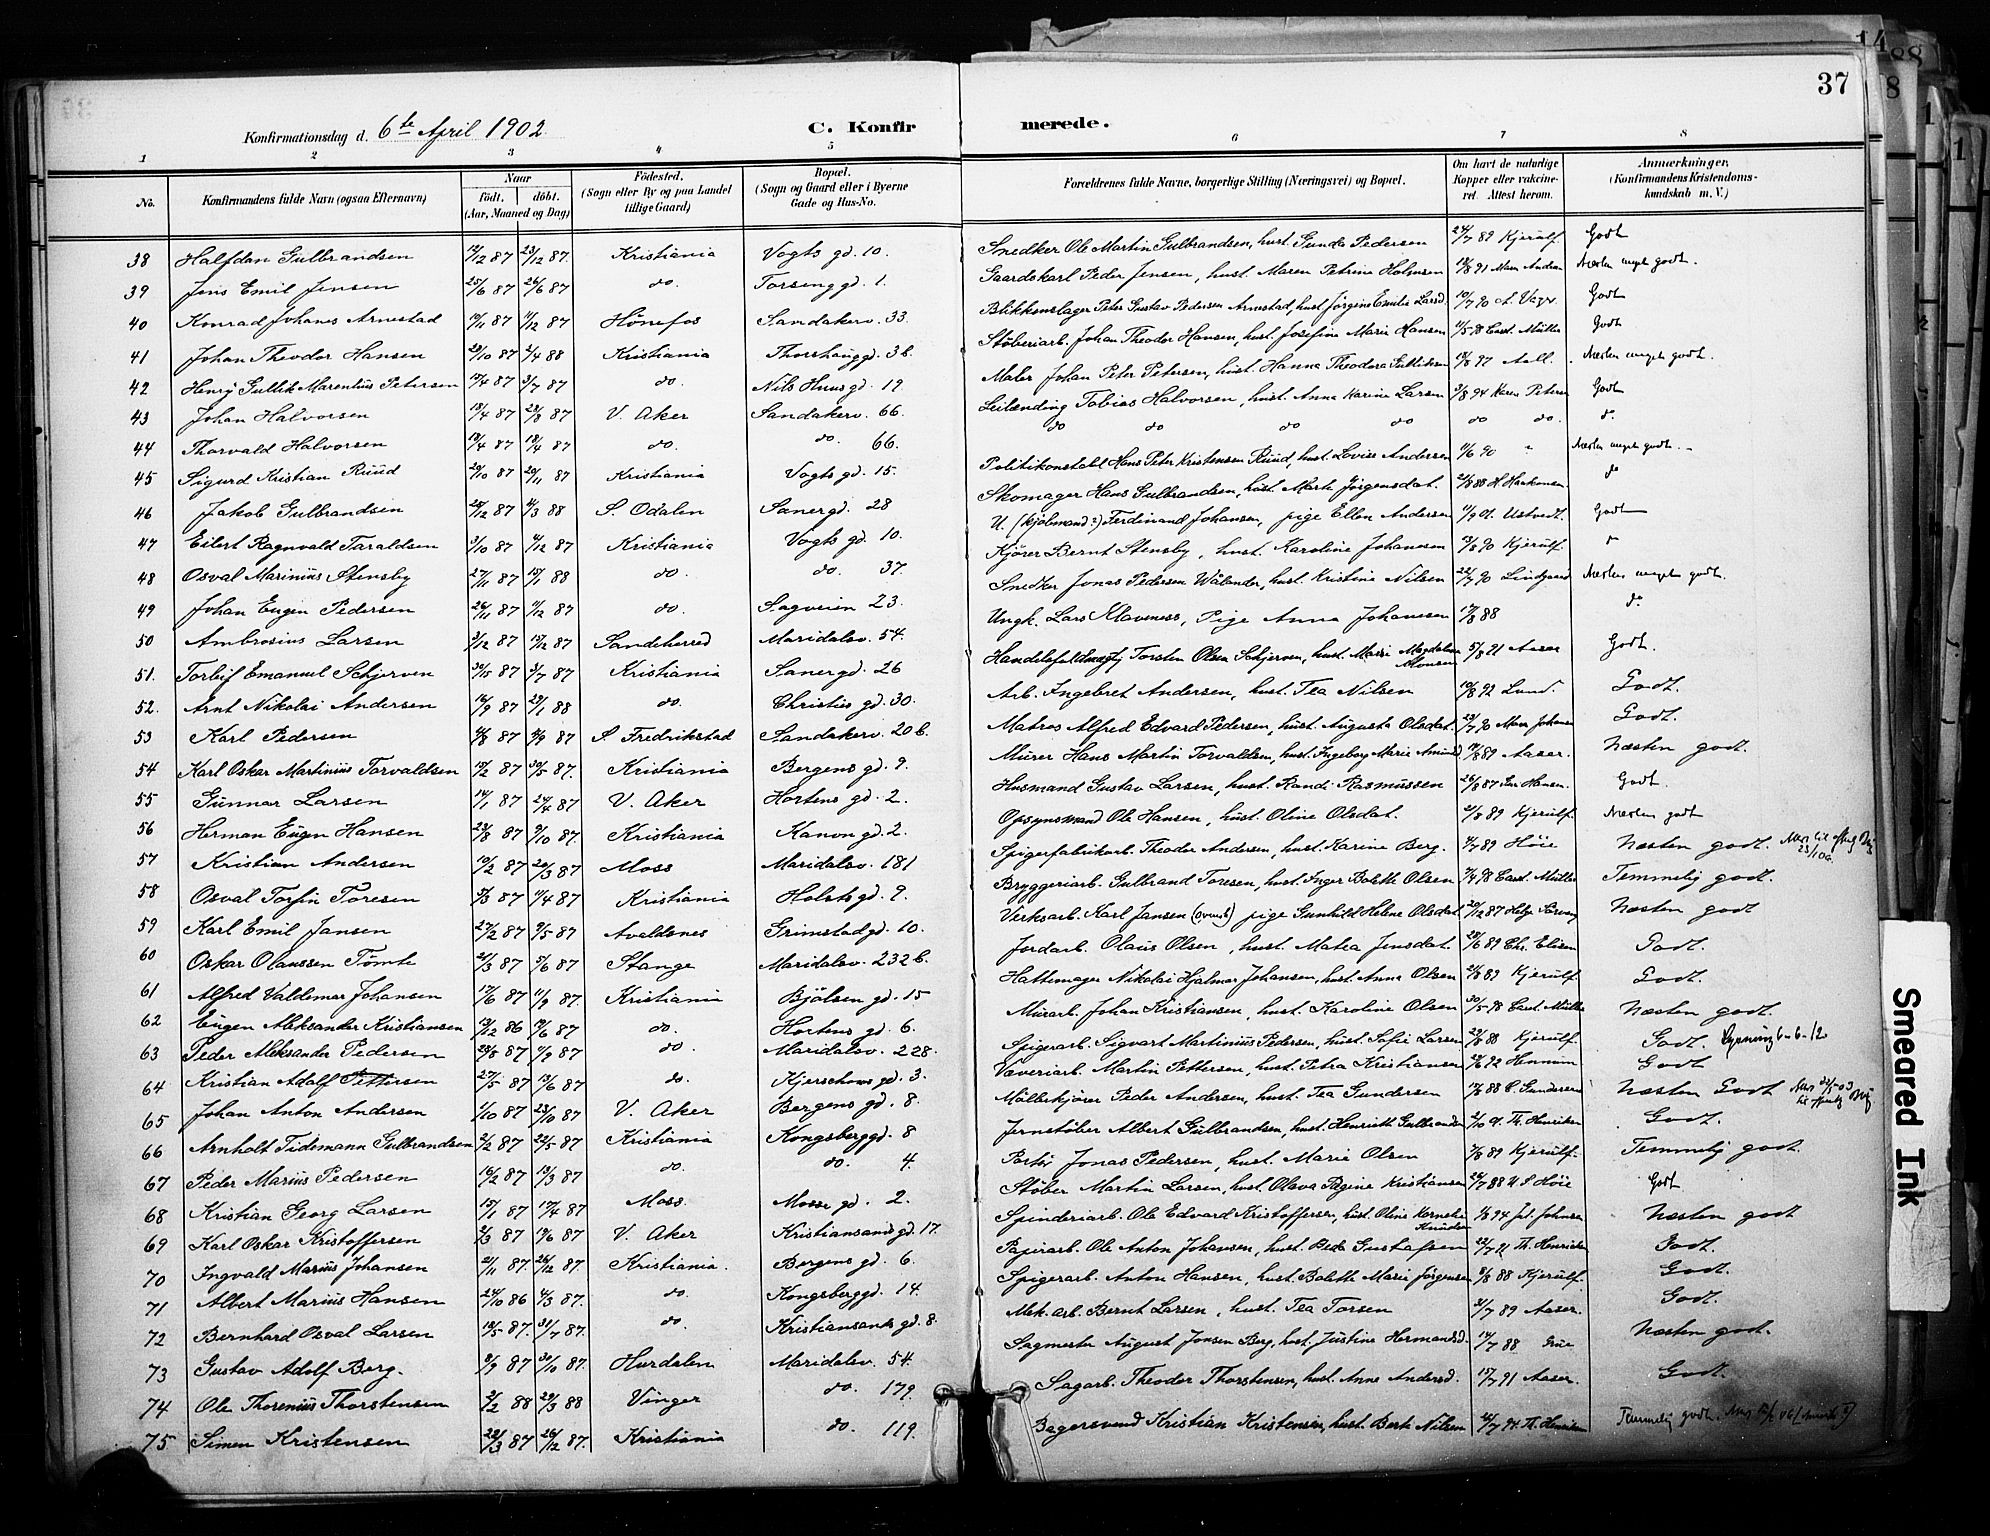 37
Konfirmationsdag d. 6te April 1902 C. Konfirmerede.
1 2 3 4 5 6 7 8
No. Konfirmandens fulde Navn (ogsaa Efternavn) Naar født. døbt. (Aar, Maaned og Dag) Fødested. (Sogn eller By og paa Landet tillige Gaard) Bopæl. (Sogn og Gaard eller i Byerne Gade og Hus-No. Forældrenes fulde Navne, borgerlige Stilling (Næringsvei) og Bopæl. Om havt de naturlige Kopper eller vakcineret. Attest herom. Anmærkninger. (Konfirmandens Kristendomskundskab m. V.)
38 Halfdan Gulbrandsen 12/12 87 23/12 87. Kristiania Vogts gd. 10. Snedker Ole Martin Gulbrandsen, hust. Gunda Pedersen 24/7 89 Kjerulf. Godt
39 Jens Emil Jensen 25/6 87 26/6 87 do. Torsenggd. 1. Gaardskarl Peder Jensen, hust. Maren Petrine Holgersen Næsten meget godt.
40 Konrad Johanes Arnestad 12/11 87 11/12 87 Hönefos Sandakerv. 33. Blikkenslager Peter Gustav Pedersen Arnestad, hust. Jørgine Emilie Larsd. 10/7 90 Godt
41 Johan Theodor Hansen 23/10 87 2/4 88 Kristiania Thorshauggd. 3b. Støberiarb. Johan Theodor Hansen, hust. Josefine Marie Hansen Godt.
42 Henry Gullik Marentius Petersen 17/4 87 3/7 87 do. Nils Huus gd. 19. Maler Johan Peter Petersen, hust. Hanna Theodora Gulliksen Aall. Næsten meget godt.
43 Johan Halvorsen 18/4 87 V. Aker Sandakerv. 66. Leilænding Tobias Halvorsen, hust. Anna Karine Larsen 3/8 94 Karen Petersen Godt
44 Thorvald Halvorsen 18/4 87 do. do. 66. do do do do do do do.
45 Sigurd Kristian Ruud 20/10 87 20/11 87 Kristiania Vogts gd. 15. Politikonstabel Hans Peter Kristensen Ruud, hust. Lovise Andersen 11/6 90 " Næsten meget godt.
46 Jakob Gulbrandsen 28/12 87 4/3 88 S. Odalen Sanergd. 28 Skomager Hans Gulbrandsen, hust. Marte Jørgensdat. do
47 Eilert Ragnvald Taraldsen 3/10 87 4/12 87 Kristiania Vogts gd. 10. U. Ferdinand Johansen, pige Ellen Andersen Ustvedt. Godt
48 Osval Marinius Stensby 27/11 87 15/1 88 do. do. 37. Kjører Bernt Stensby, hust. Karoline Johansen 13/8 90 Kjerulf.
49 Johan Eugen Pedersen 26/11 87 11/12 87 do. Sagveien 23. Snedker Jonas Pedersen Wålander, hust. Kristine Nilsen 22/7 90 Lindgaard Næsten meget godt.
50 Ambrosius Larsen 3/12 87 17/12 87 Sandeherred Maridalsv. 54. Ungk. Lars Klaveness, Pige Anna Johansen 17/8 88 do.
51. Torleif Emanuel Schjerven 30/5 87 3/7 87 Kristiania Sanergd. 26 Torsten Olsen Schjerven, hust. Marie Magdalene Monsen 5/8 91 Aaser Godt.
52. Arnt Nikolai Andersen 16/9 87 29/1 88 do. Christies gd. 30. Arb. Ingebret Andersen, hust. Tea Nilsen 10/8 92 Lund. Godt.
53 Karl Pedersen 4/8 87 9/9 87 S. Fredrikstad Sandakerv. 20b. Matros Alfred Edvard Pedersen, hust. Augusta Olsdat. 23/7 90 Godt.
54 Karl Oskar Martinius Torvaldsen 12/2 87 30/5 87. Kristiania Bergens gd. 9. Murer Hans Martin Torvaldsen, hust. Ingeborg Marie Amund 19/8 89 Aaser. Næsten godt.
55 Gunnar Larsen 14/1 87 24/4 87 V. Aker Hortens gd. 2. Husmand Gustav Larsen, hust. Randi Rasmussen 26/8 87 Hansen. Godt.
56 Herman Eugen Hansen 23/8 87 9/10 87. Kristiania Kanon gd. 2. Opsynsmand Ole Hansen, hust. Oline Olsdat. 2/8 89 Kjerulf. Næsten godt
57 Kristian Andersen 10/2 87 20/3 87 Moss Maridalsv. 181 Spigerfabrikarb. Theodor Andersen, hust. Karine Berg. 4/7 89 Höie Næsten godt.
58 Osval Torfin Toresen 5/3 87 11/4 87 Kristiania Holsts gd. 9. Bryggeriarb. Gulbrand Toresen, hust. Inger Bolette Olsen Temmelig godt.
59 Karl Emil Jansen 27/2 87 9/5 87 Avaldsnes Grimstadgd. 10. Verksarb. Karl Jansen (svensk) pige Gunhild Helene Olsdat. Næsten godt
60 Oskar Olaussen Tömte 21/3 87 5/6 87 Stange Maridalsv. 232b. Jordarb. Olaus Olsen, hust. Matea Jensdat. 28/6 89 Chr. Elisen Godt.
61 Alfred Valdemar Johansen 17/6 87 11/9 87. Kristiania Bjölsen gd. 15 Hattemager Nikolai Hjalmar Johansen, hust. Anna Olsen 21/8 89 Kjerulf. Godt.
62 Eugen Aleksander Kristiansen 12/12 86 19/6 87 do. Hortens gd. 6. Murarb. Johan Kristiansen, hust. Karoline Olsen Næsten godt.
63 Peder Aleksander Pedersen 28/8 87 4/9 87 do Maridalsv. 228. Spigerarb. Sigvart Martinius Pedersen, hust. Sofie Larsen 29/8 88 Kjerulf Godt. 6-6-12
64 Kristian Adolf Pettersen 27/5 87 19/6 87 do. Kjerschows gd. 3. Væveriarb. Martin Pettersen, hust. Petra Kristiansen Hennum Godt
65 Johan Anton Andersen 1/10 87 23/10 87 V. Aker Bergens gd. 8. Møllekjører Peder Andersen, hust. Tea Gundersen 17/8 88 C. Gundersen Næsten Godt
66 Arnholt Tidemann Gulbrandsen 2/2 87 22/5 87 Kristiania Kongsberggd. 8 Jernstøber Albert Gulbrandsen, hust. Henriette Gulbrandsen Th. Henriksen Godt.
67 Peder Marius Pedersen 16/2 87 13/3 87 do. do. 4. Jonas Pedersen, hust. Marie Olsen 7/8 89 Kjerulf. Temmelig godt.
68 Kristian Georg Larsen 15/1 87 17/4 87 Moss. Mosse gd. 2. Støber Martin Larsen, hust. Olava Regine Kristiansen Höie Godt
69 Karl Oskar Kristoffersen 2/3 87 19/6 87 V. Aker Kristiansands gd. 17. Spinderiarb. Ole Edvard Kristoffersen, hust. Oline Kornelia Knudsen Johnsen Næsten godt
70 Ingvald Marius Johansen 21/11 87. 26/12 87. Kristiania. Bergens gd. 6. Papirarb. Ole Anton Johansen, hust. Beda Gustafsen 22/7 91 Th. Henriksen Godt.
71 Albert Marius Hansen 24/10 86 4/3 87. do. Kongsberggd. 14. Spigerarb. Anton Hansen, hust. Bolette Marie Jørgensen 8/8 88 Kjerulf. Godt.
72 Bernhard Osval Larsen 18/5 87. 31/7 87. do. Kristiansands gd. 8. Mek. arb. Bernt Larsen, hust. Tea Torsen 31/7 89 Aaser. Godt.
73 Gustav Adolf Berg. 9/9 87 30/10 87. Hurdalen Maridalsv. 54. Sagmester August Jonsen Berg, hust. Justine Hermansd. 14/7 88 Grue Næsten godt.
74 Ole Thorenius Thorstensen 2/2 88 29/3 88 Vinger do. 179. Sagarb. Theodor Thorstensen, hust. Anne Andersd. 15/7 91 Aaser. Godt.
75 Simen Kristensen 22/3 87 26/12 87. Kristiania do. 119. Bagersvend Kristian Kristensen, hust. Berte Nilsen Th. Henriksen Temmelig godt.
Smeared Ink